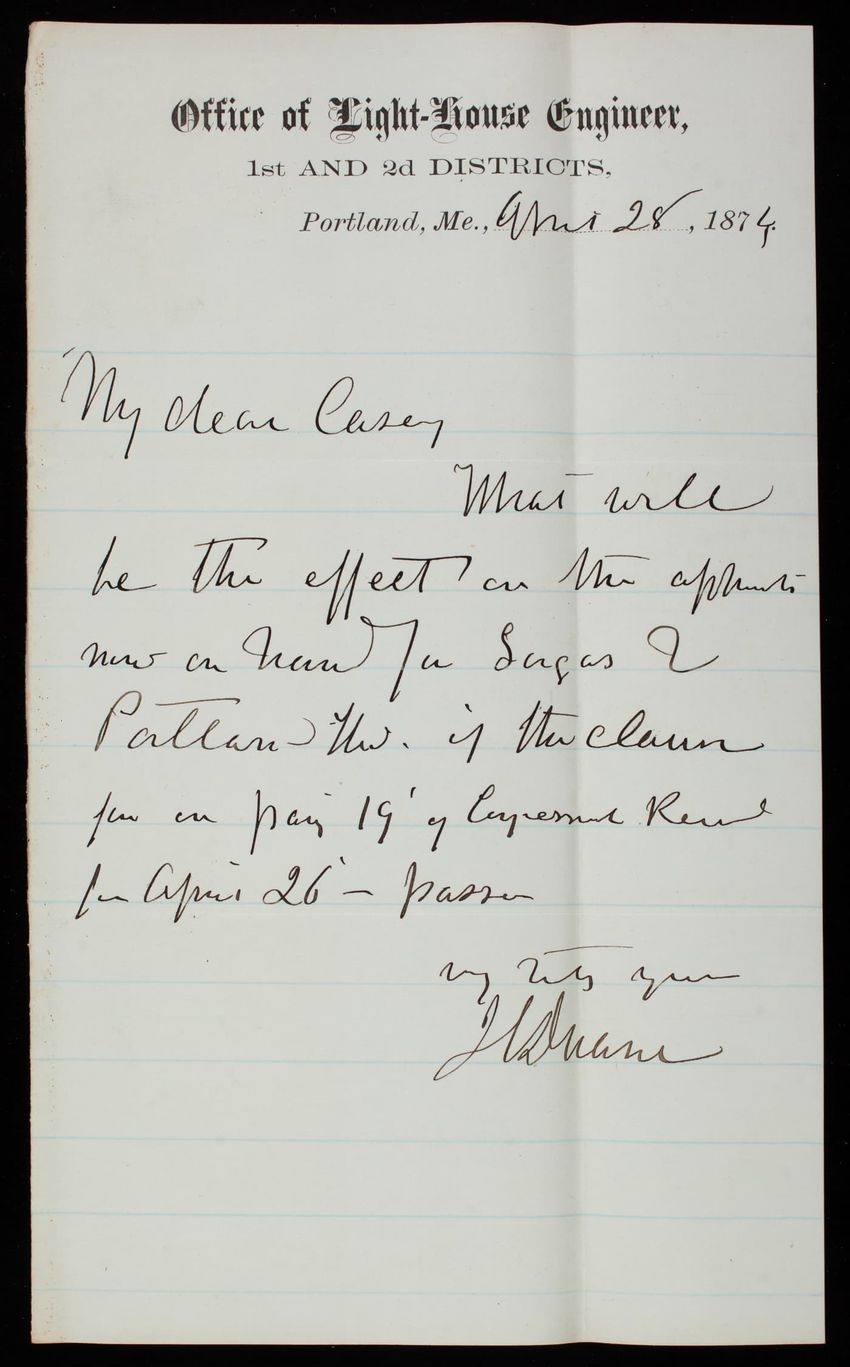 Office of Light-House Engineer,
1st AND 2d DISTRICTS,
Portland, Me., April 28, 1874.
My dear Casey
What will
be the effect on the
now on hand for &
Portland if the clause
on page 19 of Congressional Record
for April 26 - passes
yours
J C Duane